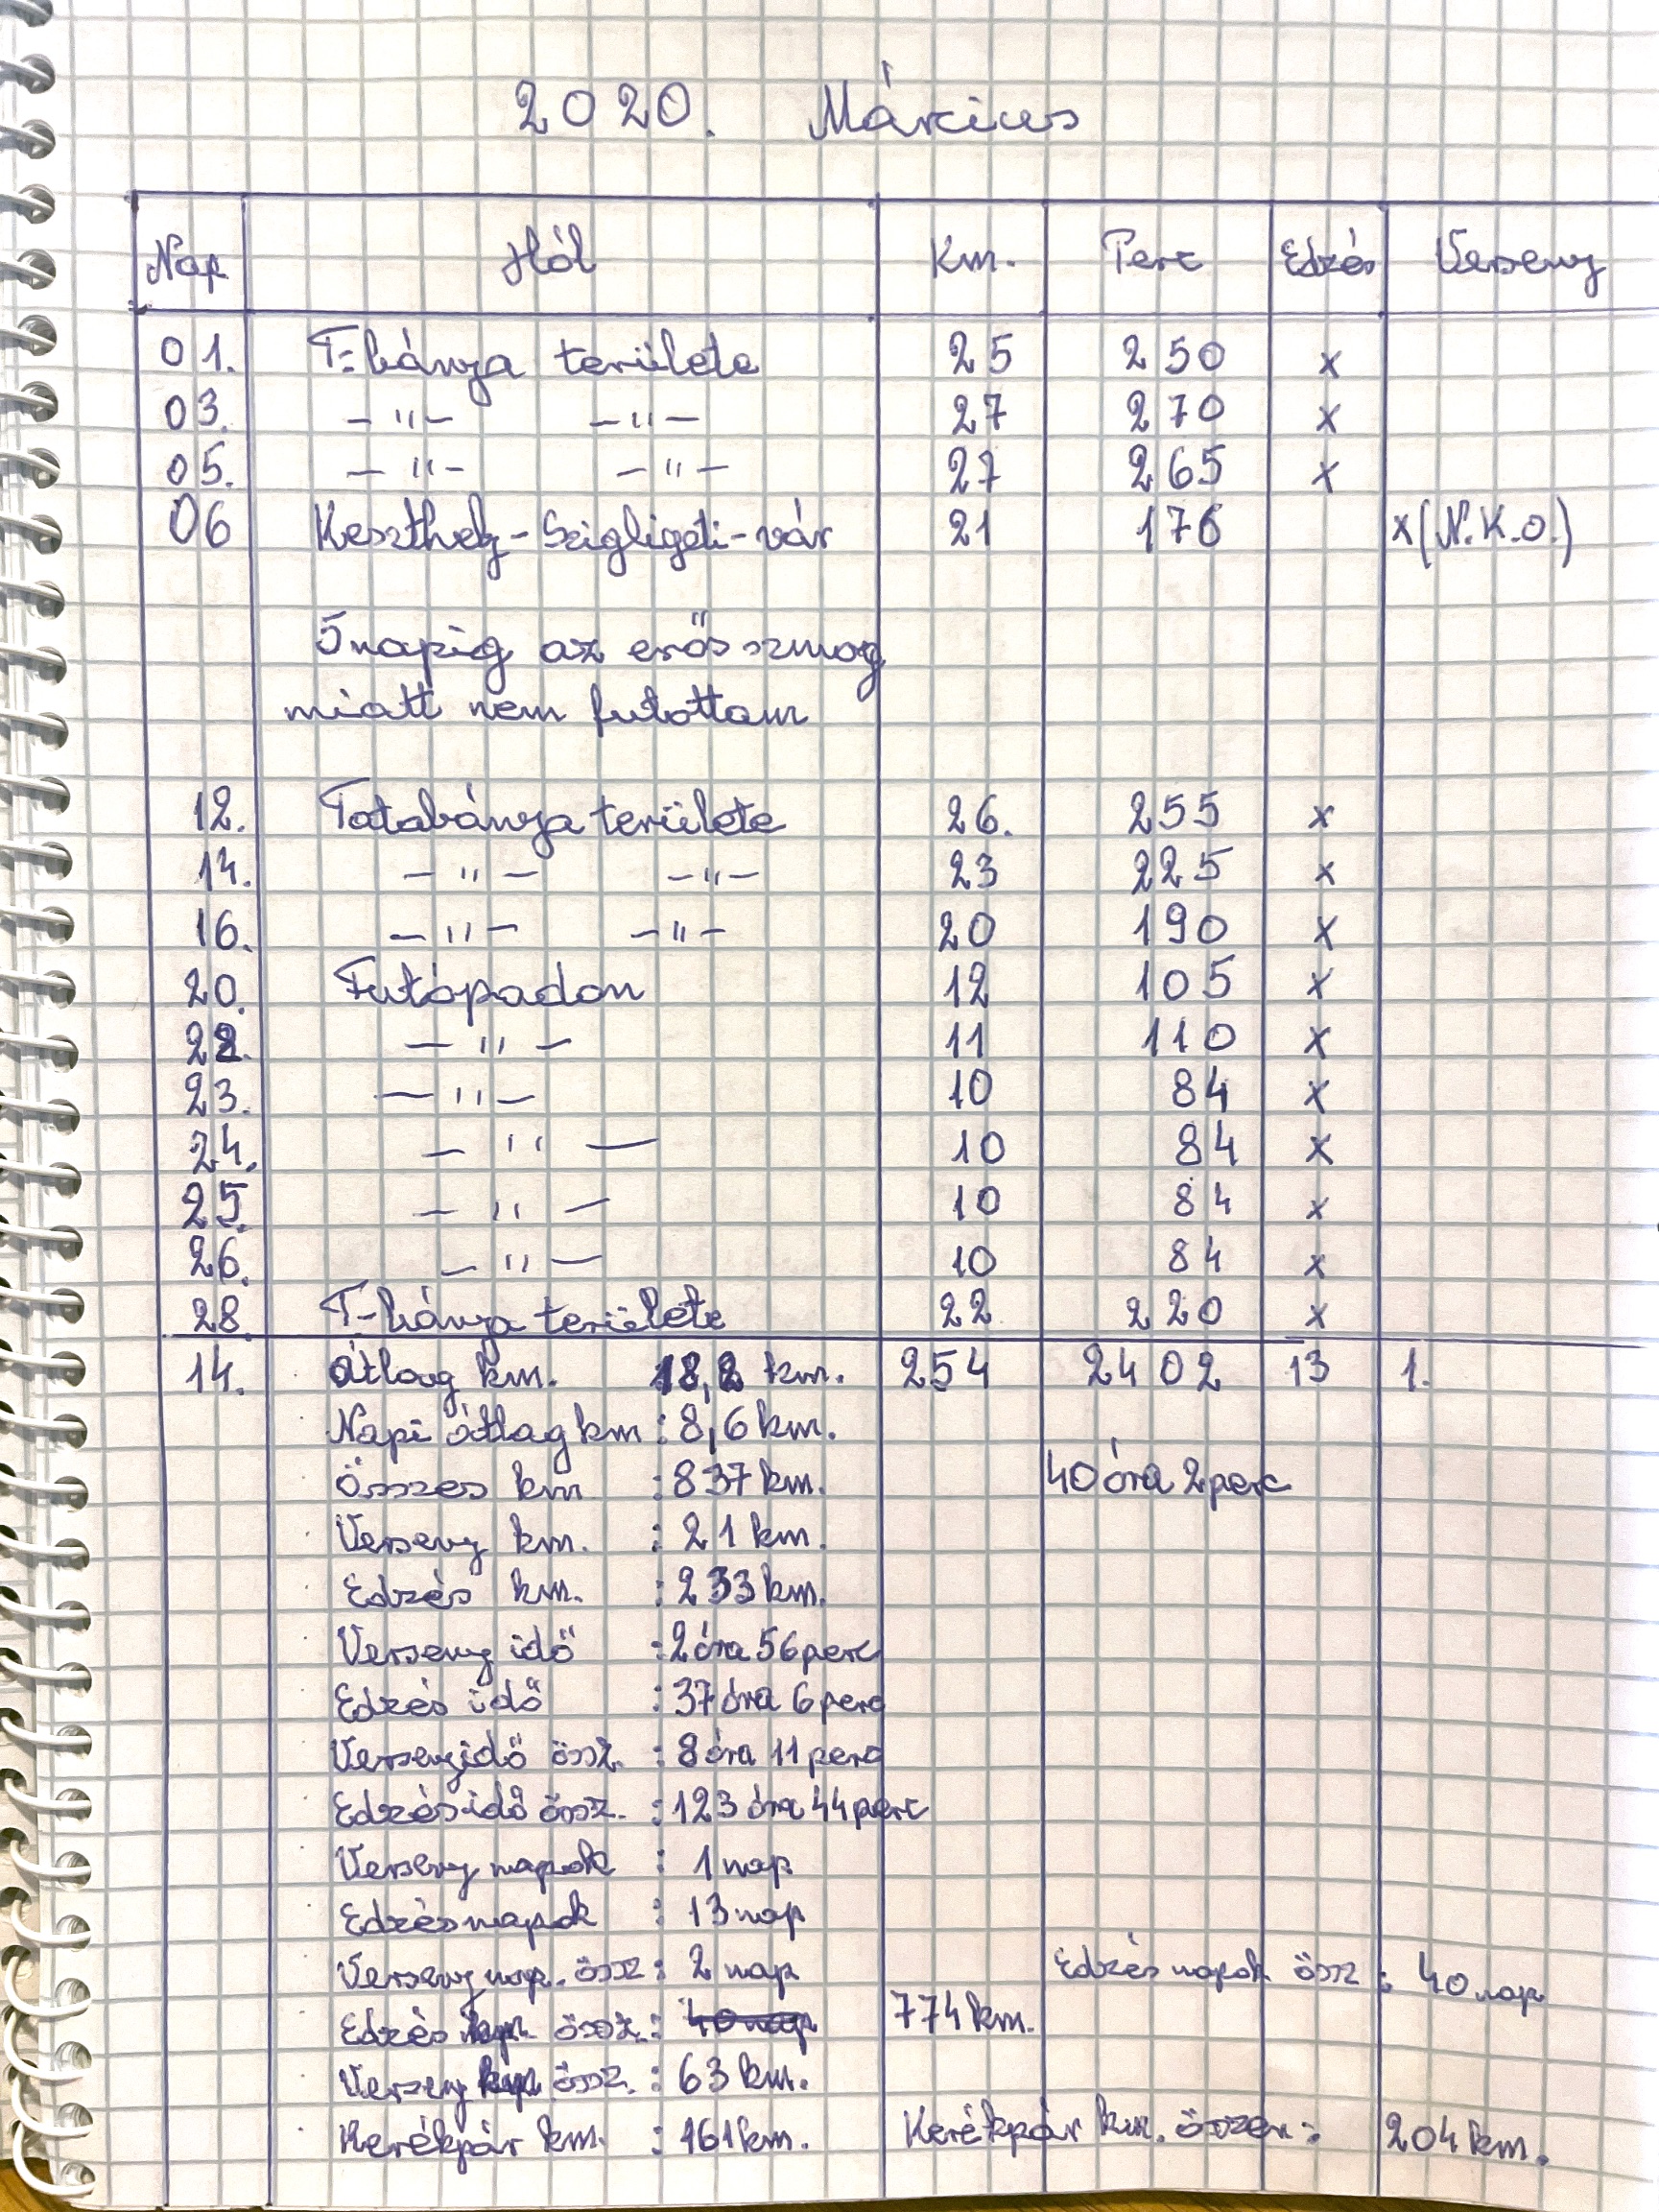 2020. Március
Nap Hól Km. Perc Edzés Verseny
01. T-bánya területe 25 250 x
03. -"- -"- 27 270 x
05. -"- -"- 27 265 x
06 Keszthely-Szigligeti-vár 21 176 x(N.K.O.)
5 napig az erős szmog
miatt nem futottam
12. Tatabánya területe 26. 255 x
14. -"- -"- 23 225 x
16. -"- -"- 20 190 x
20. Futópadon 12 105 x
22. -"- 11 110 x
23. -"- 10 84 x
24. -"- 10 84 x
25. -"- 10 84 x
26. -"- 10 84 x
28. T-bánya területe 22 220 x
14. Átlag km. 18,2 km. 254 2402 13 1.
Napi átlag km : 8,6 km.
Összes km : 837 km. 40 óra 2 perc
Verseny km. : 21 km.
Edzés km. : 233 km.
Verseny idő : 2 óra 56 perc
Edzés idő : 37 óra 6 perc
Versenyidő össz. : 8 óra 11 perc
Edzésidő össz. : 123 óra 44 perc
Verseny napok : 1 nap
Edzésnapok : 13 nap
Verseny nap. össz : 2 nap Edzés napok össz : 40 nap
Edzés km össz. : 40 nap 774 km.
Verseny km össz. : 63 km.
Kerékpár km. : 161 km. Kerékpár km. összes : 204 km.